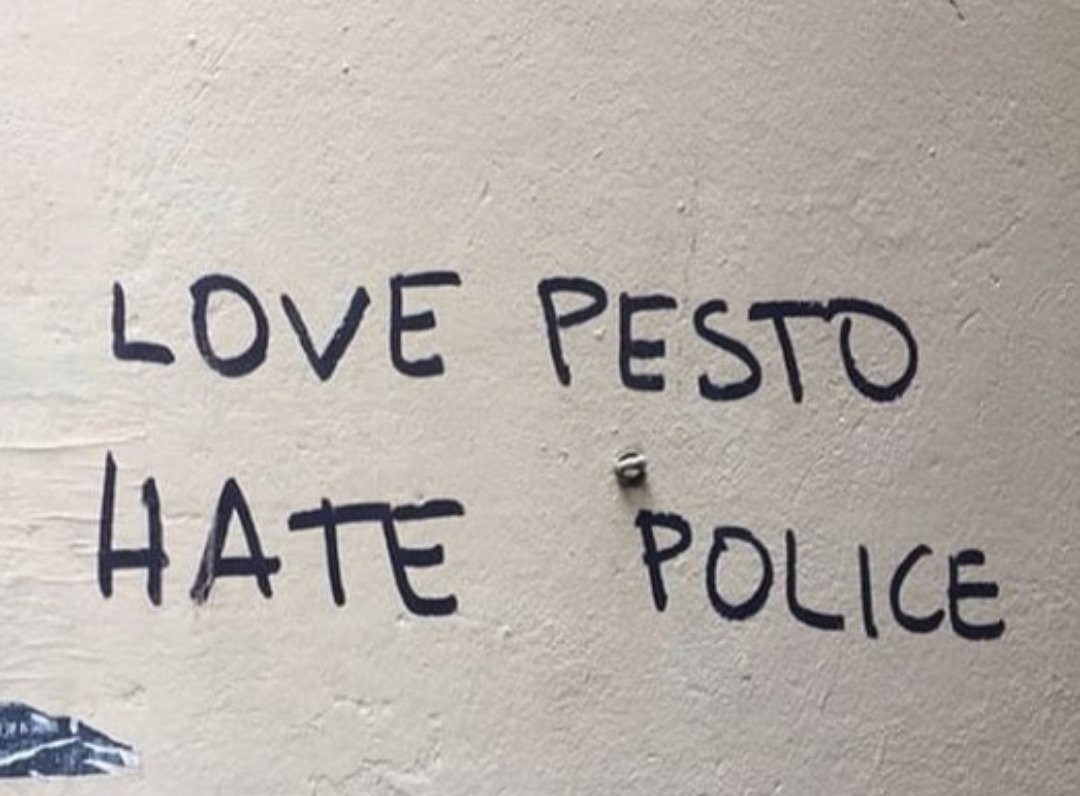 LOVE PESTO
HATE POLICE